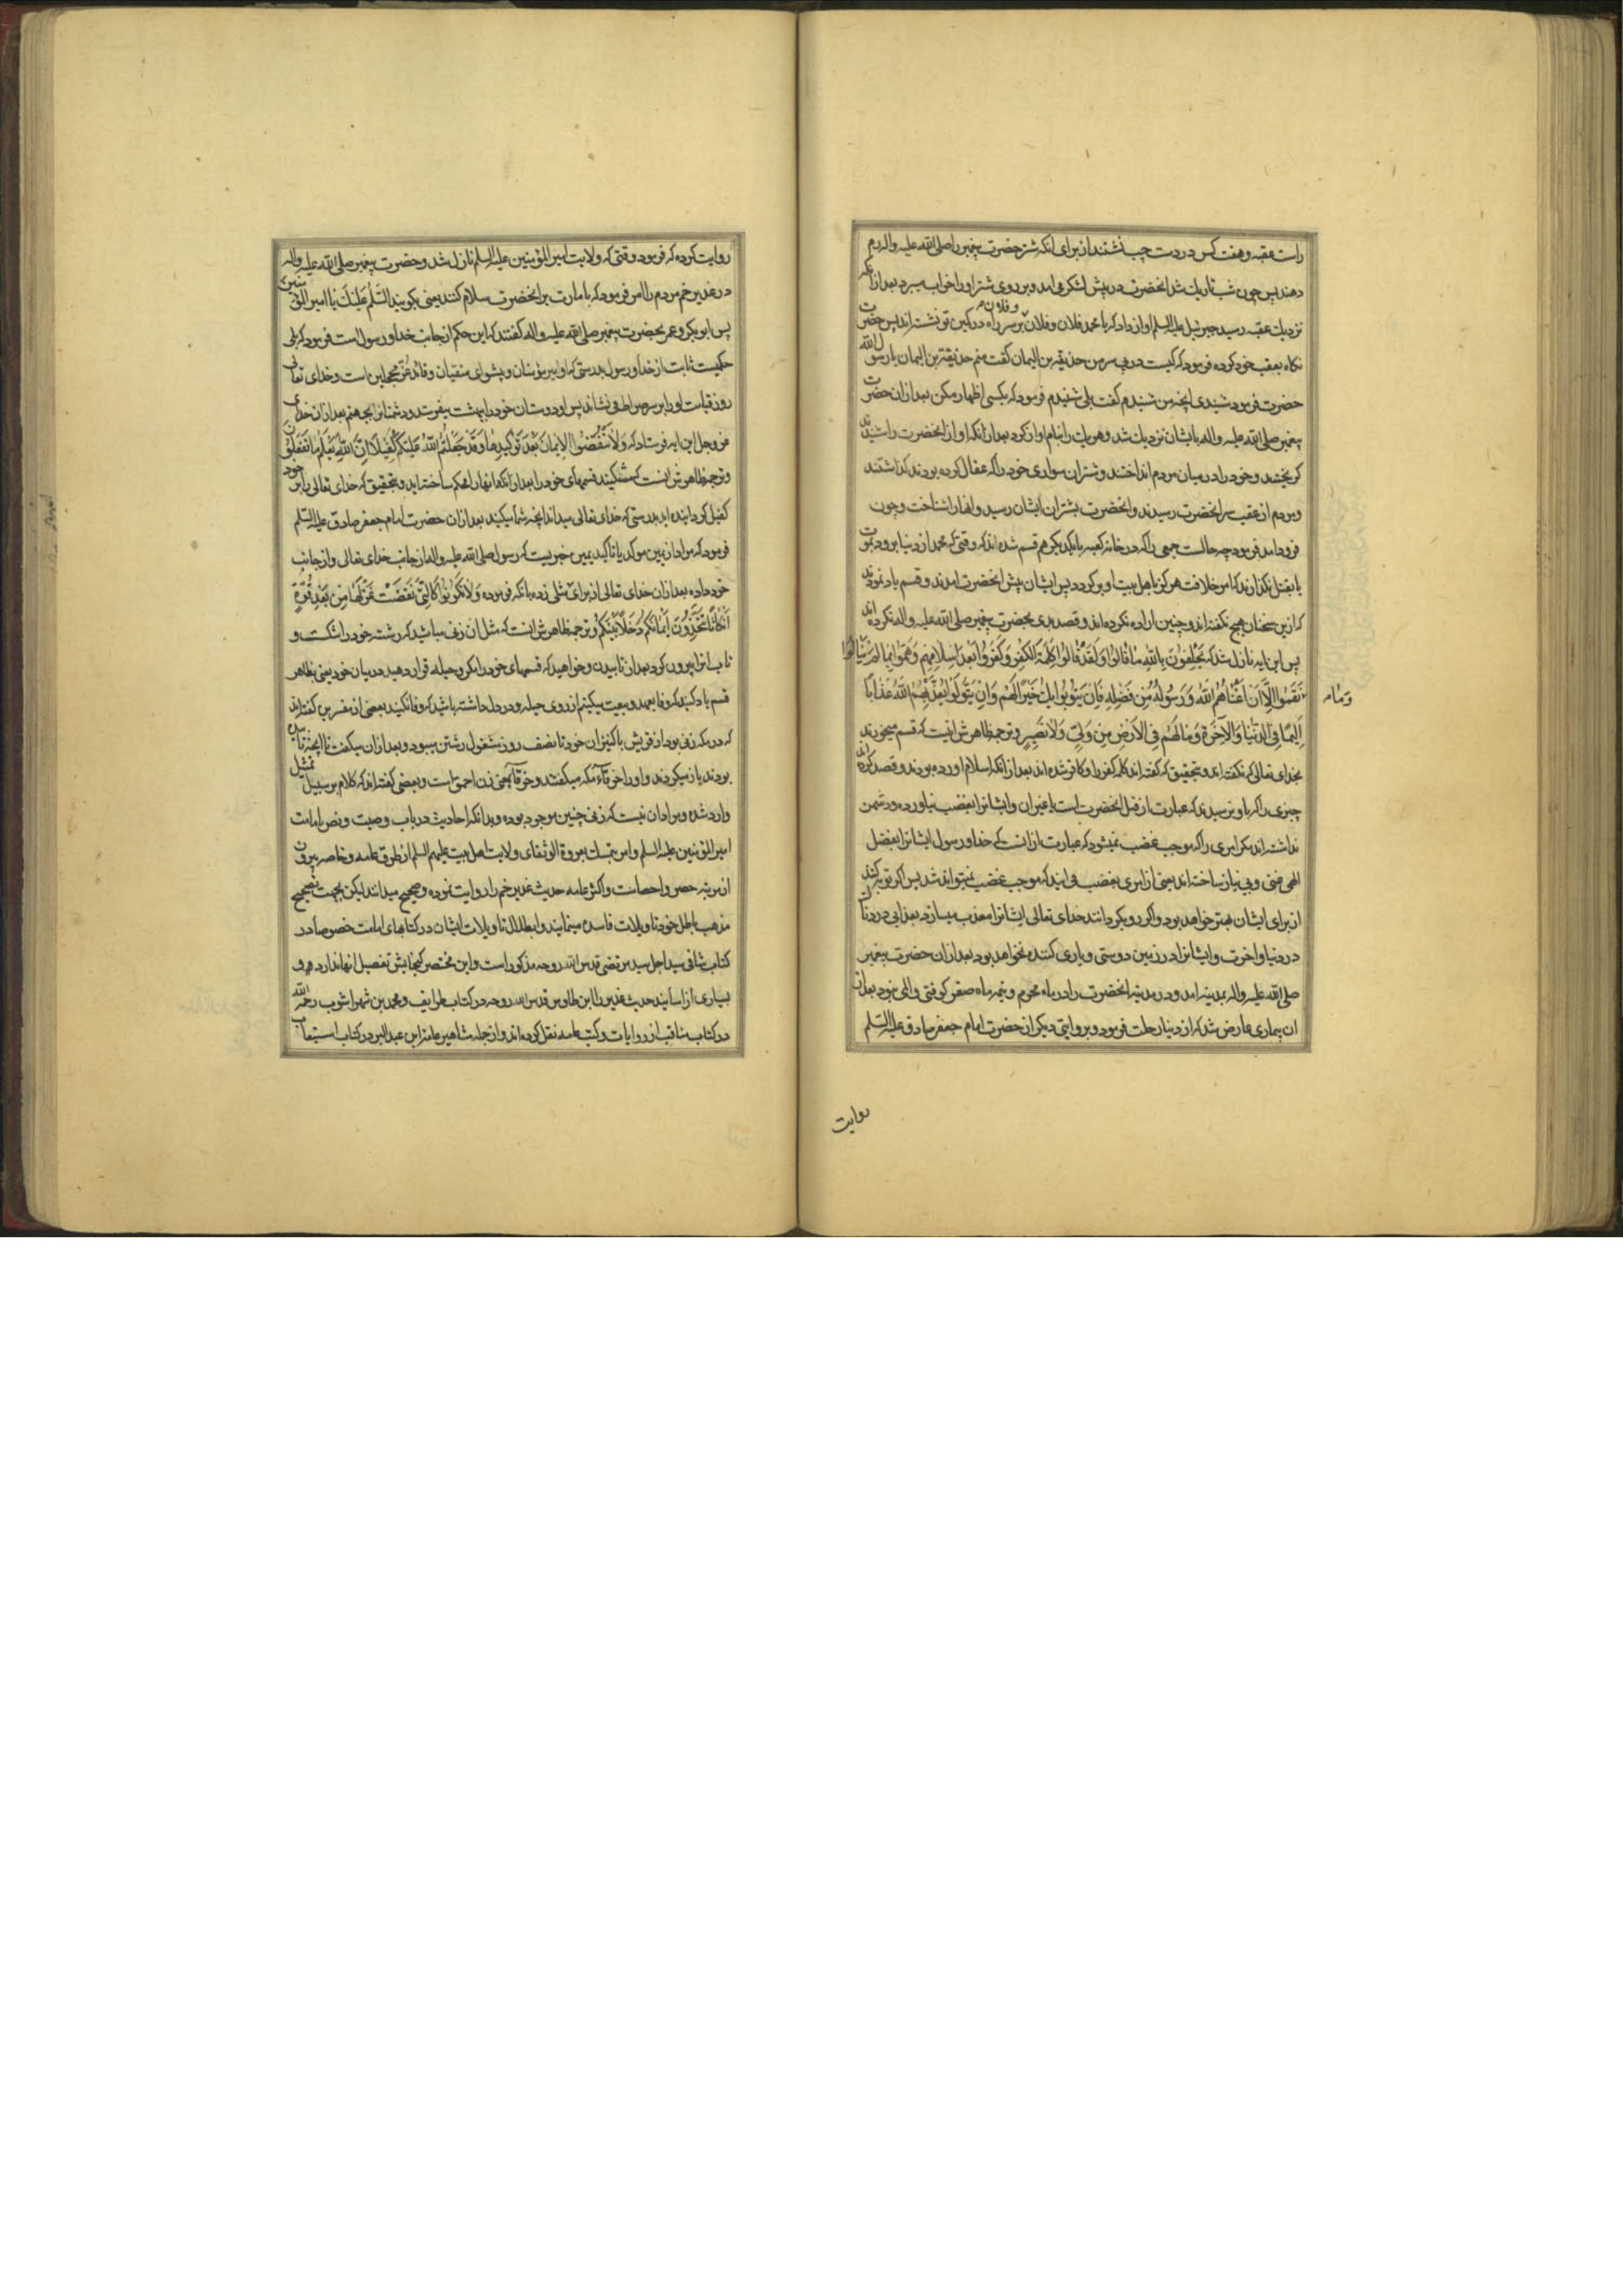 راست عقبه و هفت کس در دست چپ نشستند از برای انکه شتر حضرت پیغمبر را صلی الله علیه و اله رم
دهند پس چون شب تاریک شد انحضرت در پیش لشکر می امد و بر روی شتر او را خواب میبرد بعد از انکه
نزدیک عقبه رسید جبرئیل علیه السلم اواز داد که یا محمد فلان و فلان و فلان بر سر راه در کمین تو نشسته اند پس حضرت
نگاه بعقب خود کرده فرمود که کیست در پی سر من حذیفه بن الیمان گفت منم حذیفه بن الیمان یا رسول الله
حضرت فرمود شنیدی انچه من شنیدم گفت بلی شنیدم فرمود که بکسی اظهار مکن بعد از ان حضرت
پیغمبر صلی الله علیه و اله بایشان نزدیک شد و هر یک را بنام اواز کرد بعد از انکه اواز انحضرت را شنیدند
گریختند و خود را در میان مردم انداختند و شتران سواری خود را که عقال کرده بودند گذاشتند
و مردم از عقب سر انحضرت رسیدند و انحضرت بشتران ایشان رسید و انها را شناخت و چون
فرود امد فرمود چه حالست جمعی را که در خانه کعبه با یکدیگر هم قسم شده اند که وقتی که محمد از دنیا برود بموت
یا بقتل نگذارند که امر خلافت هرگز باهل بیت او برگردد پس ایشان پیش انحضرت امدند و قسم یاد نمودند
که ازین سخنان هیچ نگفته اند و چنین اراده نکرده اند و قصد بدی بحضرت پیغمبر صلی الله علیه و اله نکرده اند
پس این ایه نازل شد که یَحْلِفُونَ بِاللهِ ما قالُوا وَلَقَدْ قالُوا کَلِمَةَ الْکُفْرِ وَکَفَرُوا بَعْدَ اِسْلامِهِمْ وَهَمُّوا بِما لَمْ یَنالُوا
وَمٰا
نَقَمُوا اِلّا اَنْ اَغْناهُمُ اللهُ وَرَسُولُهُ مِنْ فَضْلِهِ فَاِنْ یَتُوبُوا یَکُ خَیْرًا لَهُمْ وَاِنْ یَتَوَلَّوْا یُعَذِّبْهُمُ اللهُ عَذابًا
اَلِیمًا فِی الدُّنْیا وَالْآخِرَةِ وَما لَهُمْ فِی الْاَرْضِ مِنْ وَلِیٍّ وَلا نَصِیرٍ و ترجمه ظاهرش اینست که قسم میخورند
بخدای تعالی که نگفته اند و بتحقیق که گفته اند کلمه کفر را و کافر شده اند بعد از انکه اسلام اورده بودند و قصد کرده اند
چیزی را که باو نرسیدند که عبارت از قتل انحضرت است یا غیر ان و ایشانرا بغضب نیاورده و دشمن
نداشته اند مگر امری را که موجب غضب نمیشود که عبارت از انست که خدا و رسول ایشانرا بفضل
الهی غنی و بی نیاز ساخته اند یعنی از امری بغضب می ایند که موجب غضب نمیتواند شد پس اگر توبه کنند
از برای ایشان بهتر خواهد بود و اگر رو بگردانند خدای تعالی ایشانرا معذب میسازد بعذابی دردناک
در دنیا و اخرت و ایشانرا در زمین دوستی و یاری کننده نخواهد بود بعد از ان حضرت پیغمبر
صلی الله علیه و اله بمدینه امد و در مدینه انحضرت را در ماه محرم و نیمه ماه صفر کوفتی و المی نبود بعد از
ان بیماری عارض شد که از دنیا رحلت فرمود و بروایتی دیگر از حضرت امام جعفر صادق علیه السلم
روایت
روایت کرده که فرمود وقتی که ولایت امیر المؤمنین علیه السلم نازل شد و حضرت پیغمبر صلی الله علیه و اله
در غدیر خم مردم را امر فرمود که بامارت بر انحضرت سلام کنند یعنی بگویند السَّلٰمُ عَلَیْکَ یا امیر المؤمنین
پس ابوبکر و عمر بحضرت پیغمبر صلی الله علیه و اله گفتند که این حکم از جانب خدا و رسول است فرمود که بلی
حکمیست ثابت از خدا و رسول بدرستی که او امیر مؤمنان و پیشوای متقیان و قائد غُرّ مُحَجَّلین است و خدای تعالی
روز قیامت او را بر سر صراط می نشاند پس او دوستان خود را ببهشت میفرستد و دشمنانرا بجهنم بعد از ان خدای
عز و جل این ایه فرستاد که وَلا تَنْقُضُوا الْاَیْمانَ بَعْدَ تَوْکِیدِها وَقَدْ جَعَلْتُمُ اللهَ عَلَیْکُمْ کَفِیلًا اِنَّ اللهَ یَعْلَمُ ما تَفْعَلُونَ
و ترجمه ظاهرش انست که مشکنید قسمهای خود را بعد از انکه انها را محکم ساخته اید و بتحقیق که خدای تعالی را بر خود
کفیل گردانیده اید بدرستی که خدای تعالی میداند انچه شما میکنید بعد از ان حضرت امام جعفر صادق علیه السلم
فرمود که مراد از یمین موکد یا تاکید یمین خبریست که رسول صلی الله علیه و اله از جانب خدای تعالی و از جانب
خود داده بعد از ان خدای تعالی از برای مثلی زده بانکه فرموده وَلا تَکُونُوا کَالَّتِی نَقَضَتْ غَزْلَها مِنْ بَعْدِ قُوَّةٍ
اَنْکاثًا تَتَّخِذُونَ اَیْمانَکُمْ دَخَلًا بَیْنَکُمْ و ترجمه ظاهرش انست که مثل ان زنی مباشید که رشته خود را شکست و
تاب انرا بیرون کرد بعد از تابیدن و خواهید که قسمهای خود را مکر و حیله قرار دهید در میان خود یعنی بظاهر
قسم یاد کنید که وفا بعهد و بیعت میکنیم از روی حیله و در دل داشته باشید که وفا نکنید بعضی از مفسرین گفته اند
که در مکه زنی بود از قریش با کنیزان خود تا نصف روز مشغول رشتن میبود و بعد از ان میگفت تا انچه تابیده
بودند باز میکردند و او را خرقاء مکه میگفتند و خرقاء بمعنی زن احمق است و بعضی گفته اند که کلام بر سبیل تمثیل
وارد شده و مراد ان نیست که زنی چنین موجود بوده و بدانکه احادیث در باب وصیت و نص امامت
امیر المؤمنین علیه السلم و امر بتمسک بعروة الوثقای ولایت اهل بیت علیهم السلم از طرق عامه و خاصه بیرون
از مرتبه حصر و احصاست و اکثر عامه حدیث غدیر خم را روایت نموده و صحیح میدانند لیکن بجهت تصحیح
مذهب باطل خود تاویلات فاسده مینمایند و ابطال تاویلات ایشان در کتابهای امامت خصوصا در
کتاب شافی سید اجل سید مرتضی قدس الله روحه مذکور است و این مختصر گنجایش تفصیل انها ندارد
بسیاری از اسانید حدیث غدیر را ابن طاوس قدس الله روحه در کتاب طرایف و محمد بن شهراشوب رحمه الله
در کتاب مناقب از روایات و کتب عامه نقل کرده اند و از جمله مشاهیر عامه ابن عبد البر در کتاب استیعاب